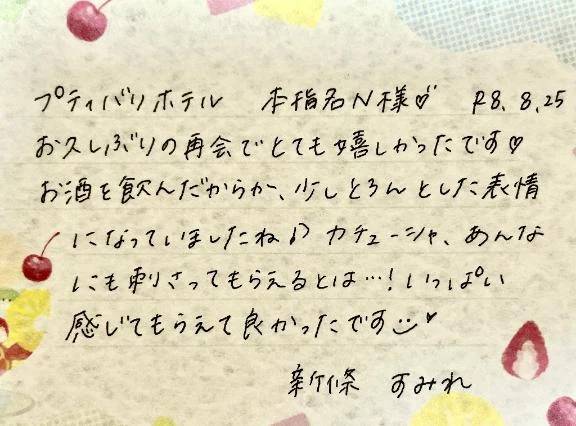 プティバリホテル 本指名N様♡ R8.8.25
お久しぶりの再会でとても嬉しかったです♡
お酒を飲んだからか、少しとろんとした表情
になっていましたね♪ カチューシャ、あんな
にも刺さってもらえるとは…！いっぱい
感じてもらえて良かったです☺♡
新條 すみれ